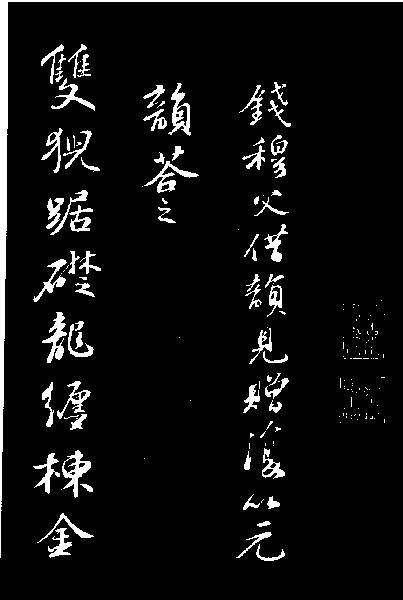 錢穆父借韻見贈復以元
韻荅之
雙猊踞礎龍纏棟金